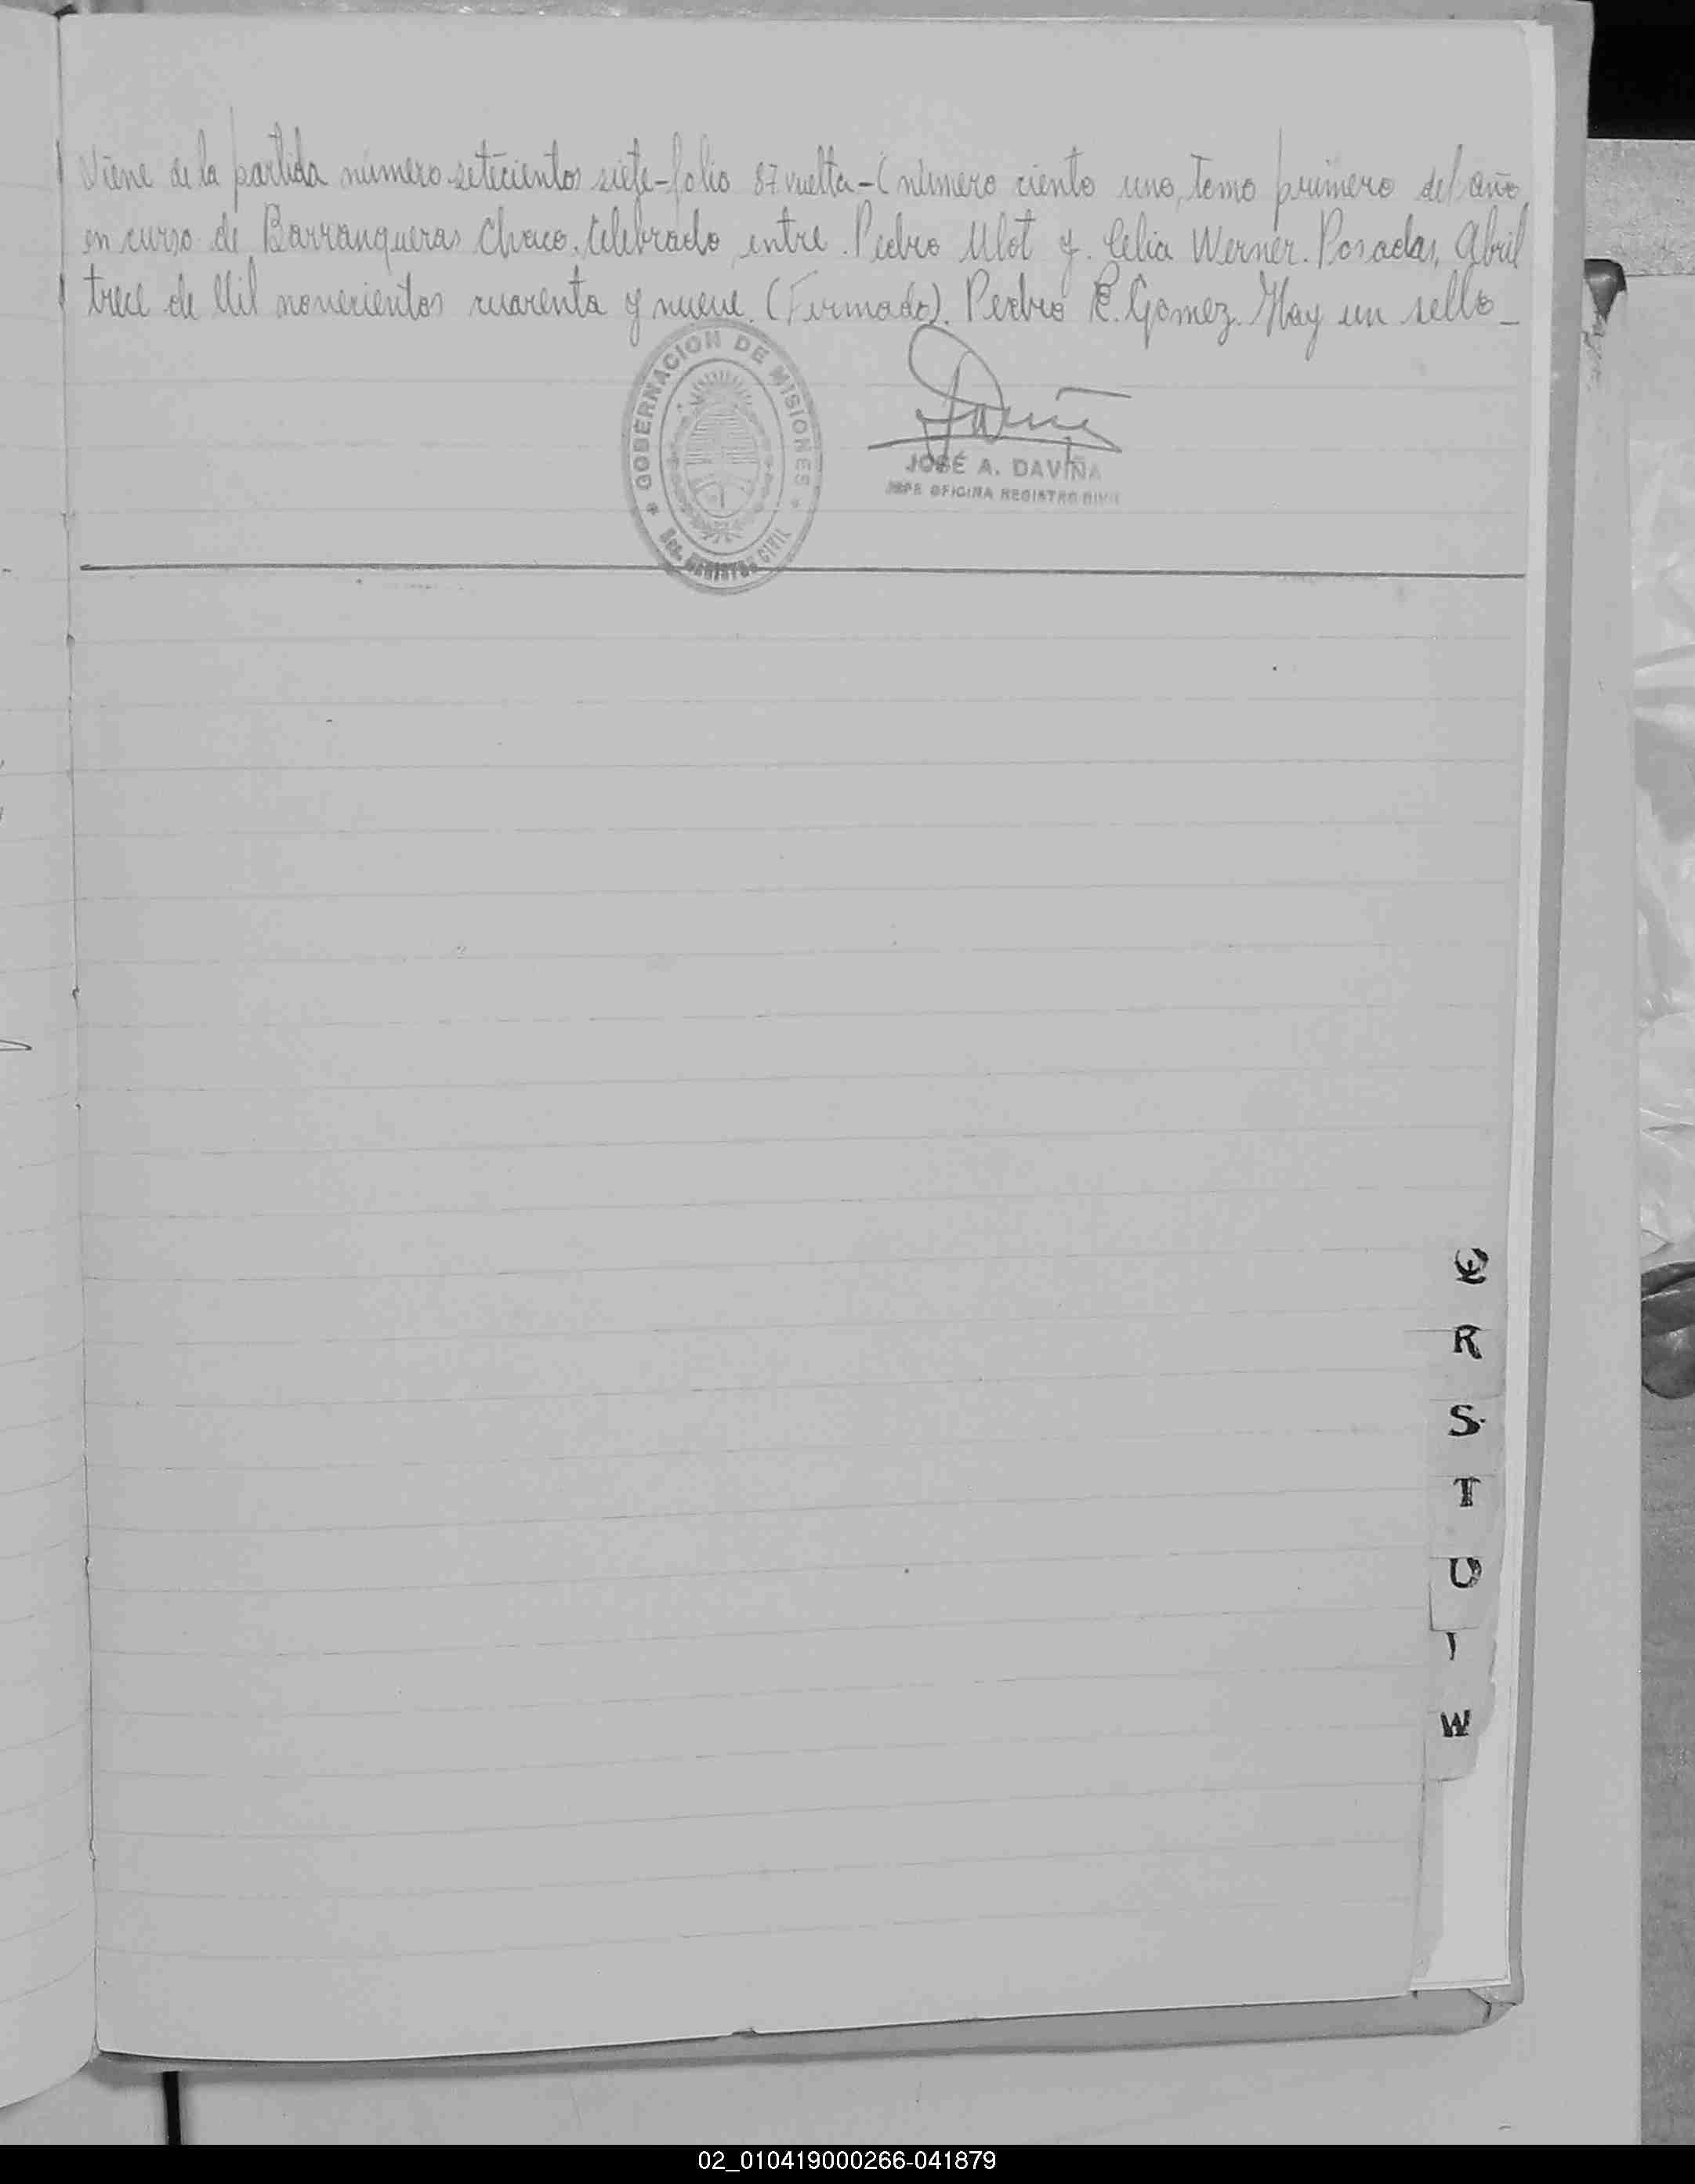 Viene de la partida número setecientos siete-folio 87 vuelta-(número ciento uno, tomo primero del año
en curso de Barranqueras Chaco, celebrado entre Pedro Ulot y Celia Werner. Posadas, Abril
trece de Mil novecientos cuarenta y nueve. (Firmado). Pedro R. Gomez. Hay un sello_
GOBERNACION DE MISIONES
REGISTRO CIVIL
JOSÉ A. DAVIÑA
JEFE OFICINA REGISTRO CIVIL
Q
R
S
T
U
W
02_010419000266-041879